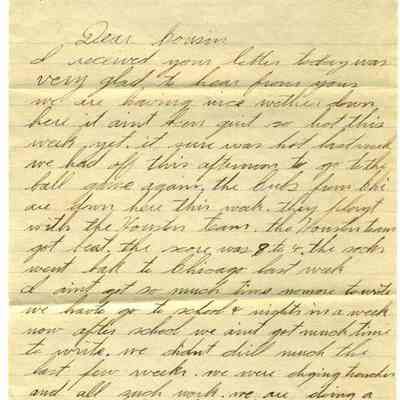 Dear Cousin
I received your letter today was
very glad to hear from you
we are having nice wether down
here it aint been quit so hot this
week yet. it sure was hot last week
we had off this afternoon to go to the
ball game again, the Cubs from Chi
are down here this week. they playt
with the Houston team. the Houston team
got beat. the score was 8 to 4. the socks
went back to Chicago last week
I aint got so much time nomore to write
we have go to school 4 nights in a week
now after school we aint got much time
to write. we didnt drill much the
last few weeks. we were diging trenches
and all such work. we are diving a